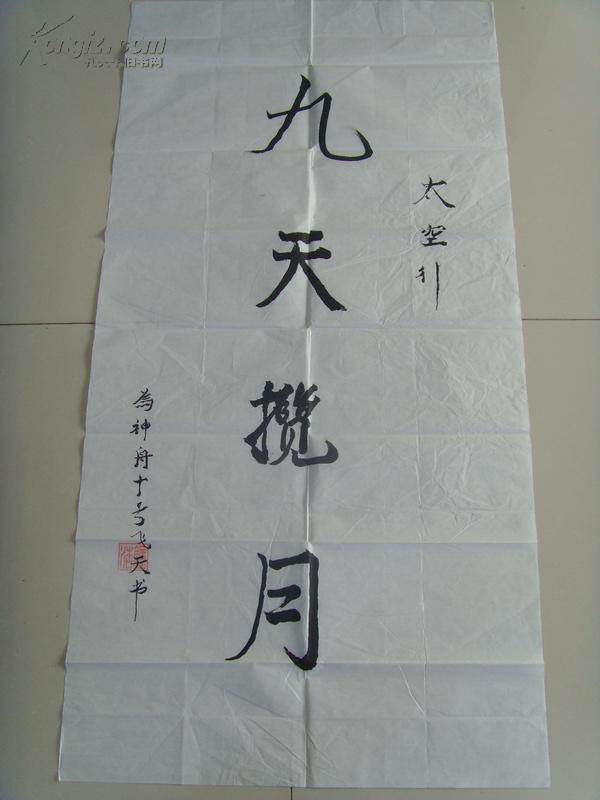 Kongfz.com
孔夫子旧书网
太空行
九天揽月
為神舟十号飞天书